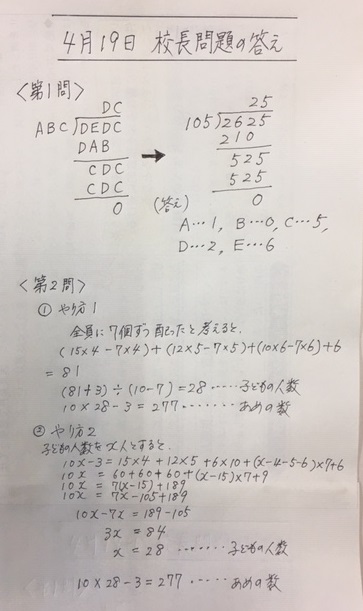 4月19日 校長問題の答え
<第1問>
DC
ABC)DEDC
DAB
CDC
CDC
0
→
25
105)2625
210
525
525
0
(答え)
A…1, B…0, C…5,
D…2, E…6
<第2問>
① やり方1
全員に7個ずつ配ったと考えると、
(15×4-7×4)+(12×5-7×5)+(10×6-7×6)+6
=81
(81+3)÷(10-7)=28……子どもの人数
10×28-3=277……あめの数
② やり方2
子どもの人数をx人とすると、
10x-3=15×4+12×5+6×10+(x-4-5-6)×7+6
10x=60+60+60+(x-15)×7+9
10x=7(x-15)+189
10x=7x-105+189
10x-7x=189-105
3x=84
x=28……子どもの人数
10×28-3=277……あめの数